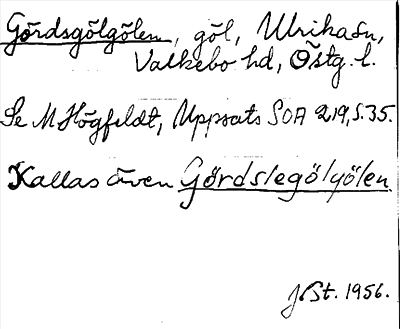 Gördsgölgölen, göl, Ulrika sn,
Valkebo hd, Östg. l.
Se M Högfeldt, Uppsats SOA 219, s. 35.
Kallas även Gördslegölgölen
1956.